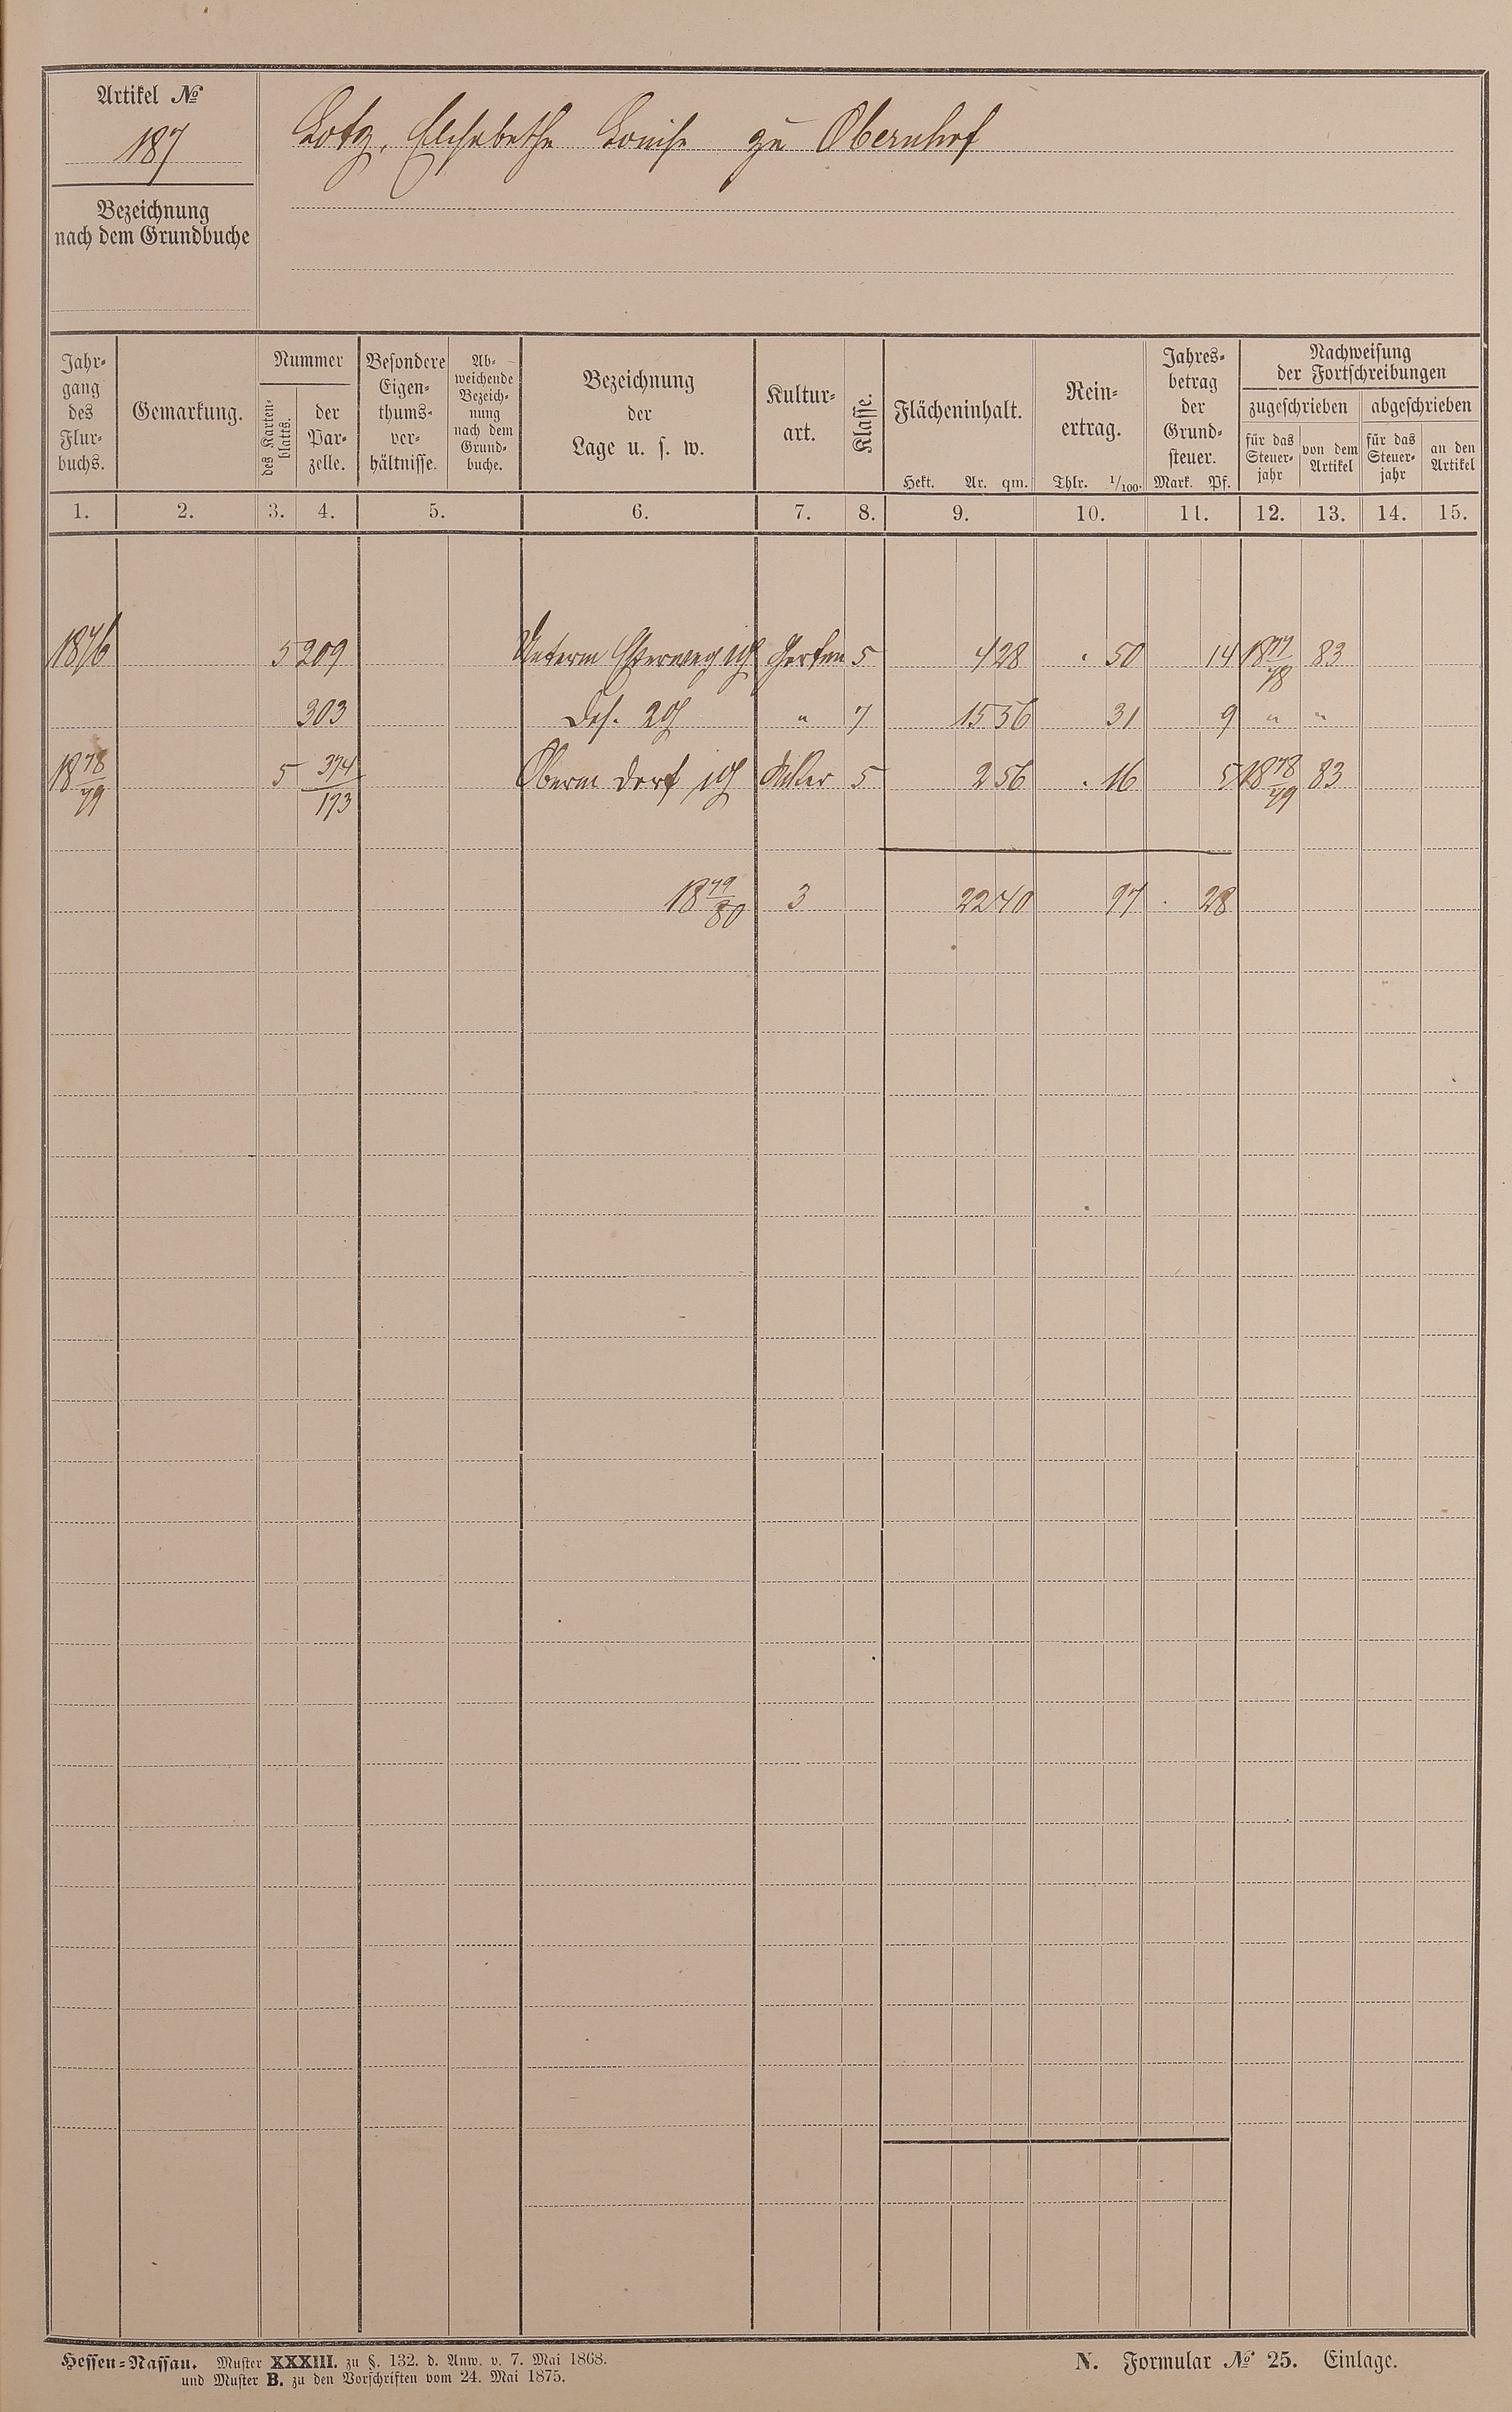 Artikel №
187
Lotz, Elisabethe Louise zu Obernhof
Bezeichnung
nach dem Grundbuche
Jahr-
gang
des
Flur-
buchs.
Gemarkung.
Nummer
des Karten-
blatts.
der
Par-
zelle.
Besondere
Eigen-
thums-
ver-
hältnisse.
Ab-
weichende
Bezeich-
nung
nach dem
Grund-
buche.
Bezeichnung
der
Lage u. s. w.
Kultur-
art.
Klasse.
Flächeninhalt.
Hekt. Ar. qm.
Rein-
ertrag.
Thlr. 1/100.
Jahres-
betrag
der
Grund-
steuer.
Mark. Pf.
Nachweisung
der Fortschreibungen
zugeschrieben
abgeschrieben
für das
Steuer-
jahr
von dem
Artikel
für das
Steuer-
jahr
an den
Artikel
1. 2. 3. 4. 5. 6. 7. 8. 9. 10. 11. 12. 13. 14. 15.
1876 5 209 Unterm 5 4 28 . 50 14 1877/78 83
303 Das. " 7 15 56 31 9 " "
1878/79 5 374/173 Oberm Dorf Acker 5 2 56 . 16 5 1878/79 83
1879/80 3 22 40 97 . 28
Hessen-Nassau. Muster XXXIII. zu §. 132. d. Anw. v. 7. Mai 1868.
und Muster B. zu den Vorschriften vom 24. Mai 1875.
N. Formular № 25. Einlage.